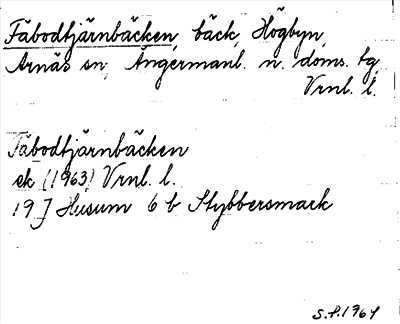 Fäbodtjärnbäcken, bäck, Högbyn,
Arnäs sn, Ångermanl. n. doms. tg,
Vrnl. l.
Fäbodtjärnbäcken
ek (1963) Vrnl. l.
19 J Husum 6 b Stybbersmark
S.F. 1964